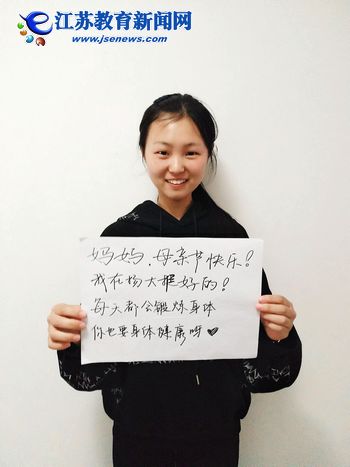 江苏教育新闻网
www.jsenews.com
妈妈,母亲节快乐!
我在扬大挺好的!
每天都会锻炼身体
你也要身体健康呀♥